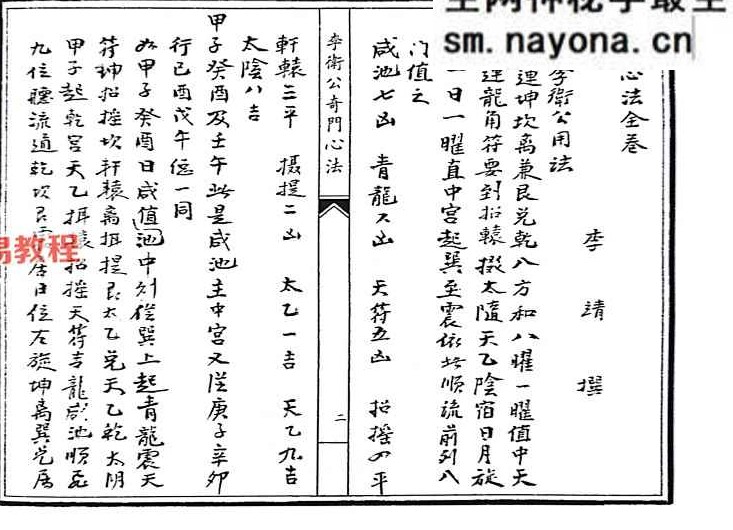 空网神秘学最全
sm.nayona.cn
心法全卷
李衛公用法
李靖撰
運坤坎离兼艮兑乾八方和八曜一曜值中天
逆龍角符要到招轅摄太隨天乙陰宿日月旋
一日一曜直中宫起巽至震依此順流前列八
门值之
咸池七凶 青龍六凶 天符五凶 招摇四平
李衛公奇門心法
二
軒轅三平 摄提二凶 太乙一吉 天乙九吉
太陰八吉
甲子癸酉及壬午此是咸池主中宫又從庚子辛卯
行己酉戊午偃一同
如甲子癸酉日咸值池中列從巽上起青龍震天
符坤招摇坎軒轅离摄提艮太乙兑天乙乾太阴
甲子起乾宫天乙 轅招摇天符吉龍咸池順
九位聽流道乾坎艮 居日位左旋坤离巽兑
易教程